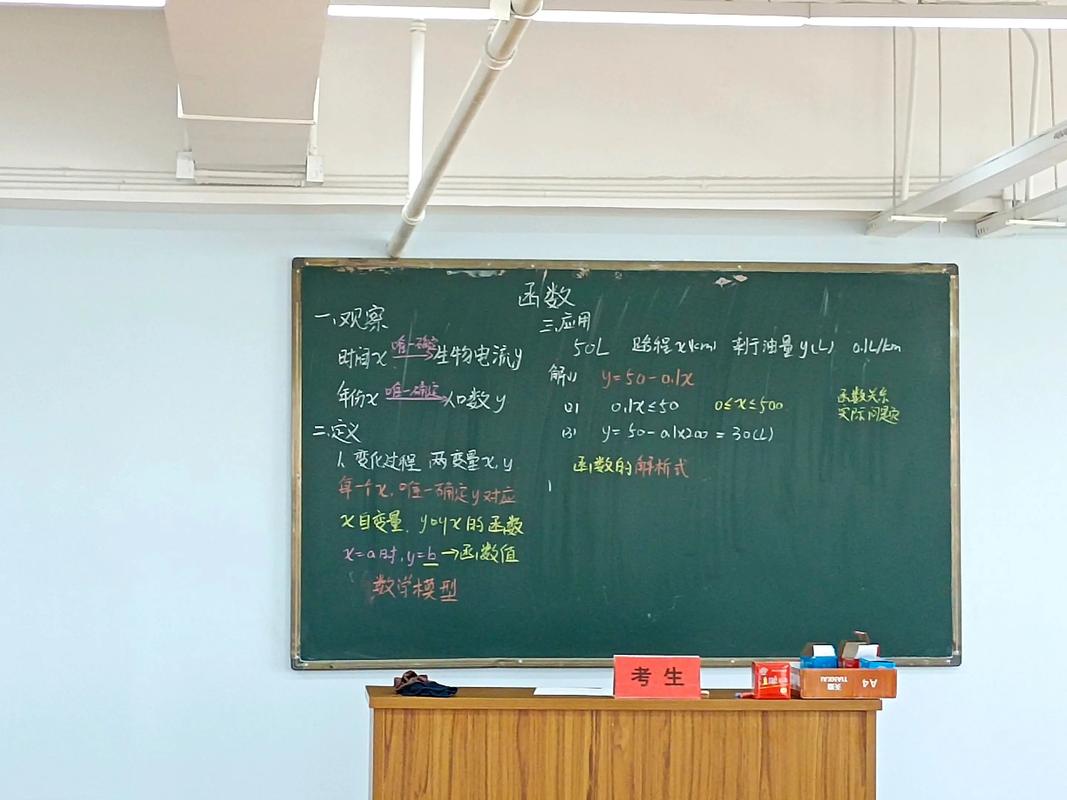 函数
一、观察
时间x 唯一确定 生物电流y
年份x 唯一确定 人口数y
二、定义
1、变化过程 两变量x,y
每一个x,唯一确定y对应
x自变量,y是x的函数
x=a时,y=b→函数值
数学模型
三、应用
50L 路程x(km) 剩于油量y(L) 0.1L/km
解(1) y=50-0.1x
(2) 0.1x≤50 0≤x≤500
(3) y=50-0.1x200=30(L)
函数关系
实际问题定
函数的解析式
考生
A4
TIANZHANG